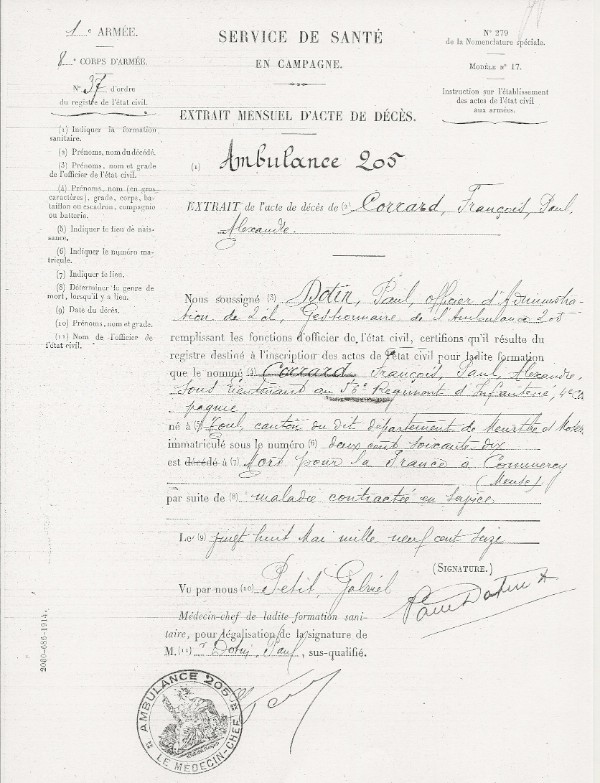 1e ARMÉE.
8e CORPS D'ARMÉE
N° 37 d'ordre
du registre de l'état civil.
(1) Indiquer la formation
sanitaire.
(2) Prénoms, nom du décédé.
(3) Prénoms, nom et grade
de l'officier de l'état civil.
(4) Prénoms, nom (en gros
caractères), grade, corps, ba-
taillon ou escadron, compagnie
ou batterie.
(5) Indiquer le lieu de nais-
sance.
(6) Indiquer le numéro ma-
tricule.
(7) Indiquer le lieu.
(8) Déterminer le genre de
mort, lorsqu'il y a lieu.
(9) Date du décès.
(10) Prénoms, nom et grade.
(11) Nom de l'officier de
l'état civil.
SERVICE DE SANTÉ
EN CAMPAGNE.
N° 279
de la Nomenclature spéciale.
MODÈLE N° 17.
Instruction sur l'établissement
des actes de l'état civil
aux armées.
EXTRAIT MENSUEL D'ACTE DE DÉCÈS.
(1) Ambulance 205
EXTRAIT de l'acte de décès de (2) Corrard, François, Paul,
Alexandre.
Nous soussigné (3) Dotin, Paul, officier d'Administra-
tion de 2e cl, Gestionnaire de l'Ambulance 205
remplissant les fonctions d'officier de l'état civil, certifions qu'il résulte du
registre destiné à l'inscription des actes de l'état civil pour ladite formation
que le nommé (4) Corrard François, Paul, Alexandre,
Sous lieutenant au 56e Régiment d'Infanterie, 4e Co
pagnie
né à (5) Toul, canton du dit département de Meurthe et Mos
immatriculé sous le numéro (6) deux cent soixante-dix
est décédé à (7) Mort pour la France à Commercy
(Meuse)
par suite de (8) maladie contractée en service
Le (9) vingt huit Mai mille neuf cent seize
(SIGNATURE.)
Vu par nous (10) Petit, Gabriel
Paul Dotin
Médecin-chef de ladite formation sani-
taire, pour légalisation de la signature de
M. (11) Dotin, Paul, sus-qualifié.
AMBULANCE 205
LE MÉDECIN-CHEF
2060-689-1914.